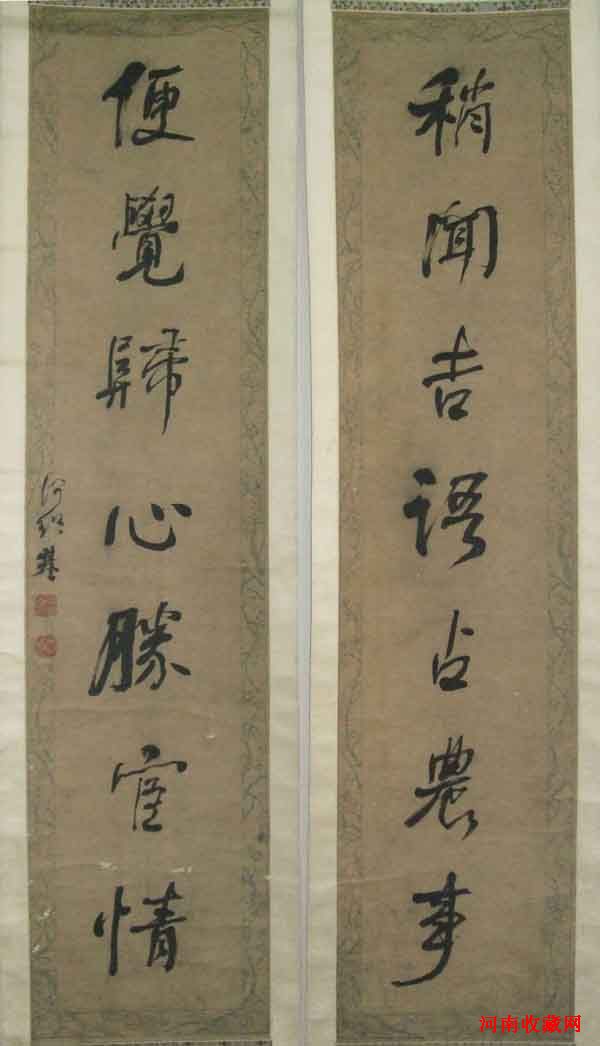 稍聞吉語占農事
便覺歸心勝宦情
何紹基
河南收藏网